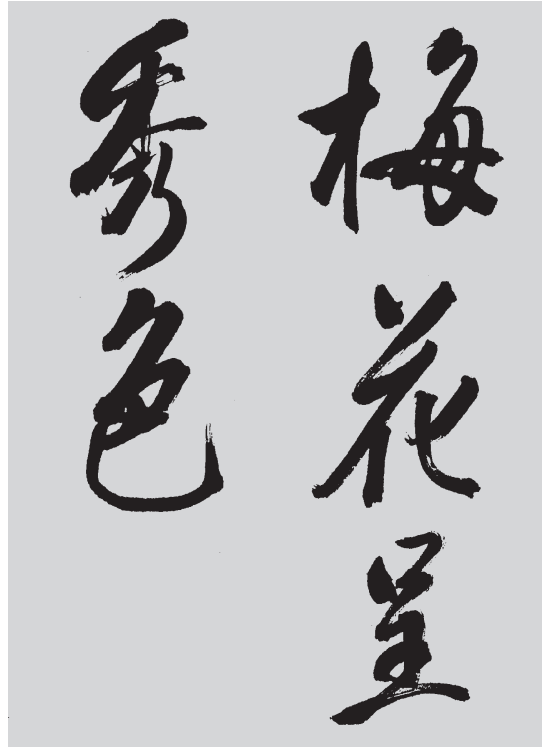 梅花呈
秀色